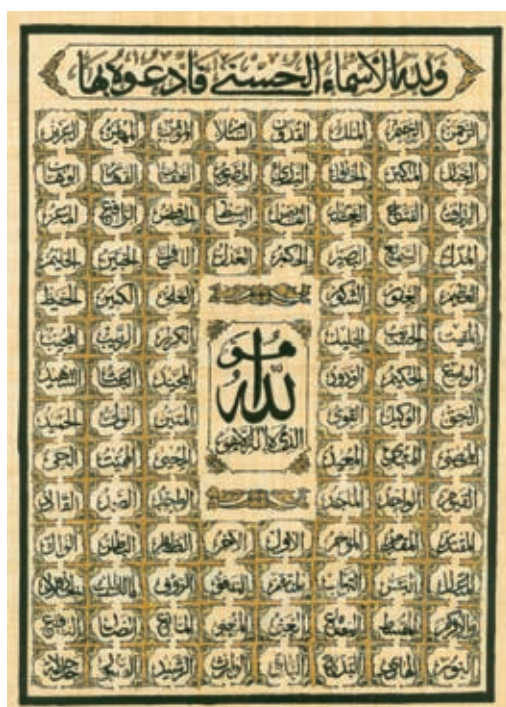 ولله الأسماء الحسنى فادعوه بها
الرحمن الرحيم الملك القدوس السلام المؤمن المهيمن العزيز
الجبار المتكبر الخالق البارئ المصور الغفار القهار الوهاب
الرزاق الفتاح العليم القابض الباسط الخافض الرافع المعز
المذل السميع البصير الحكم العدل اللطيف الخبير الحليم
العظيم الغفور الشكور العلي الكبير الحفيظ
المقيت الحسيب الجليل الكريم الرقيب المجيب
هو
الله
الذي لا إله إلا هو
الواسع الحكيم الودود المجيد الباعث الشهيد
الحق الوكيل القوي المتين الولي الحميد
المحصي المبدئ المعيد المحيي المميت الحي
القيوم الواجد الماجد الواحد الصمد القادر
المقتدر المقدم المؤخر الأول الآخر الظاهر الباطن الوالي
المتعال البر التواب المنتقم العفو الرؤوف مالك الملك ذو الجلال
والإكرام المقسط الجامع الغني المغني المانع الضار النافع
النور الهادي البديع الباقي الوارث الرشيد الصبور جل جلاله